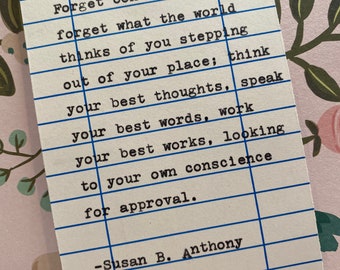 Forget
forget what the world
thinks of you stepping
out of your place; think
your best thoughts, speak
your best words, work
your best works, looking
to your own conscience
for approval.
-Susan B. Anthony